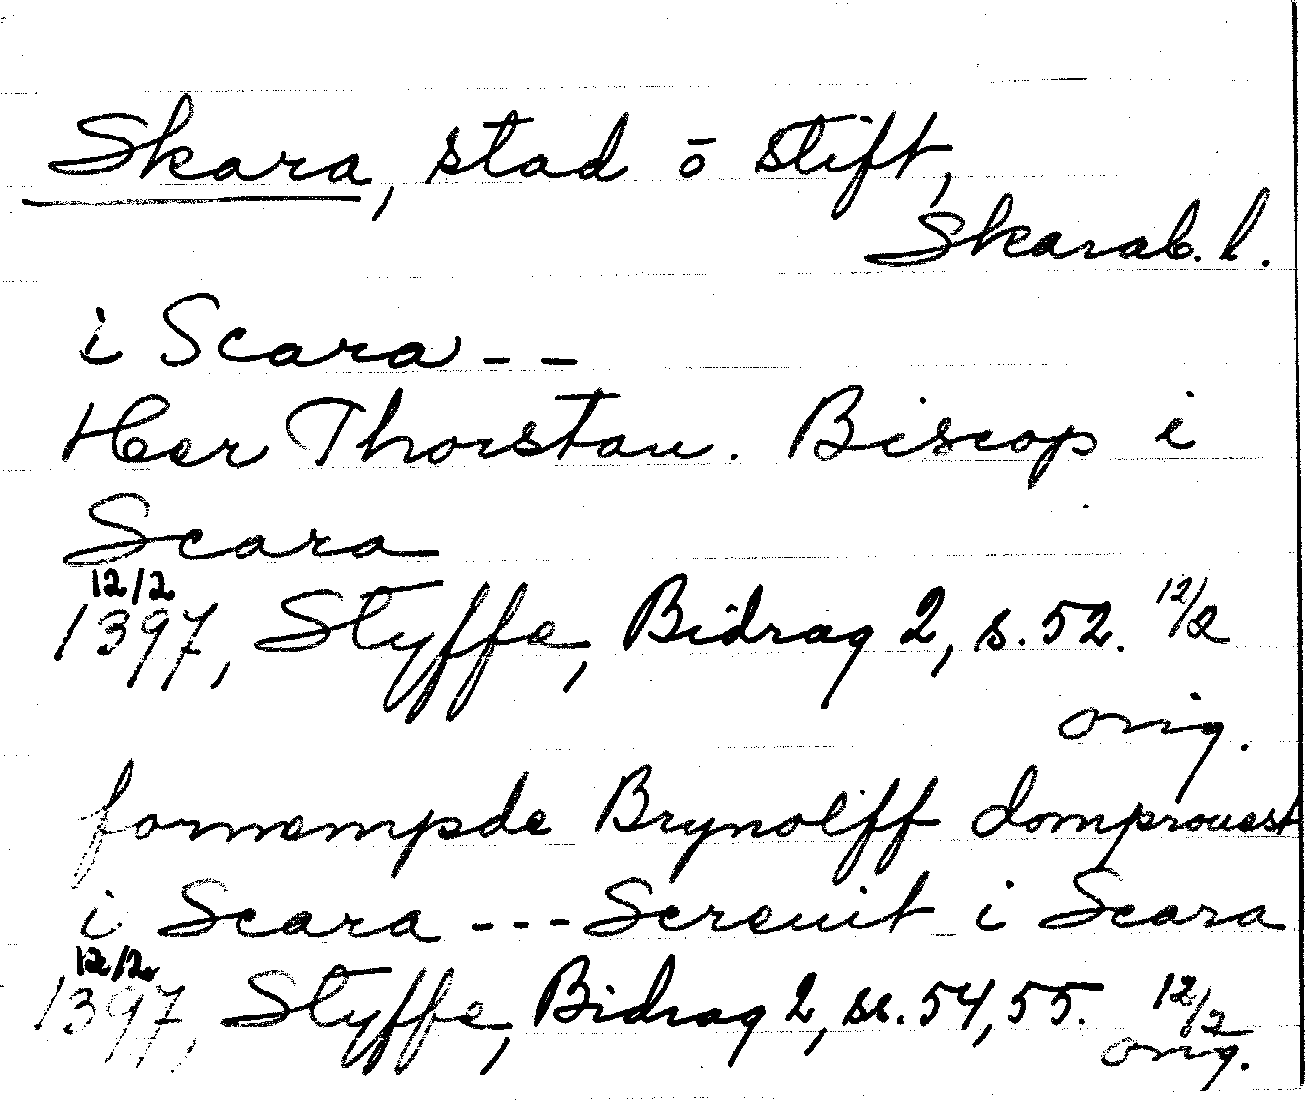 Skara, stad ō stift,
Skarab. l.
i Scara - -
Her Thorstan. Biscop i
Scara
12/2
1397, Styffe, Bidrag 2, s. 52. 12/2
orig.
fornempde Brynolff domprouast
i Scara - - - Screuit i Scara
12/2
1397, Styffe, Bidrag 2, ss. 54, 55. 12/2
orig.